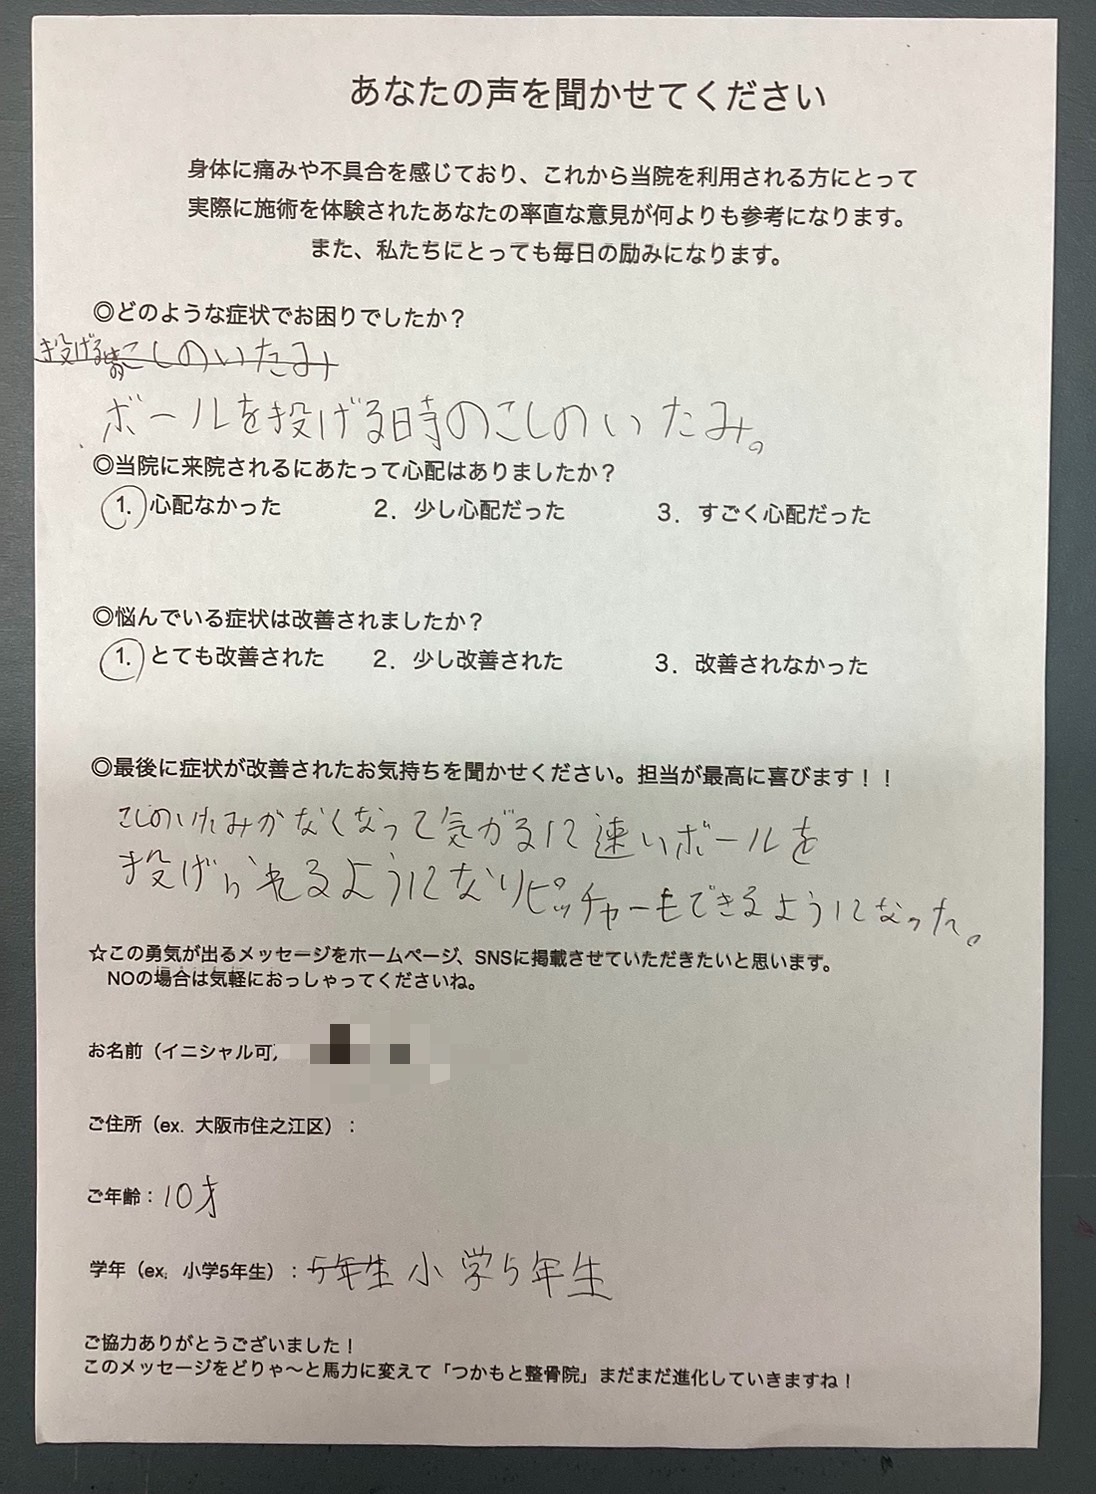 あなたの声を聞かせてください
身体に痛みや不具合を感じており、これから当院を利用される方にとって
実際に施術を体験されたあなたの率直な意見が何よりも参考になります。
また、私たちにとっても毎日の励みになります。
◎どのような症状でお困りでしたか？
投げる時のこしのいたみ
ボールを投げる時のこしのいたみ。
◎当院に来院されるにあたって心配はありましたか？
1. 心配なかった 2. 少し心配だった 3. すごく心配だった
◎悩んでいる症状は改善されましたか？
1. とても改善された 2. 少し改善された 3. 改善されなかった
◎最後に症状が改善されたお気持ちを聞かせください。担当が最高に喜びます！！
こしのいたみがなくなって気がるに速いボールを
投げられるようになりピッチャーもできるようになった。
☆この勇気が出るメッセージをホームページ、SNSに掲載させていただきたいと思います。
NOの場合は気軽におっしゃってくださいね。
お名前（イニシャル可）
ご住所（ex. 大阪市住之江区）：
ご年齢：10才
学年（ex. 小学5年生）：5年生 小学5年生
ご協力ありがとうございました！
このメッセージをどりゃ〜と馬力に変えて「つかもと整骨院」まだまだ進化していきますね！